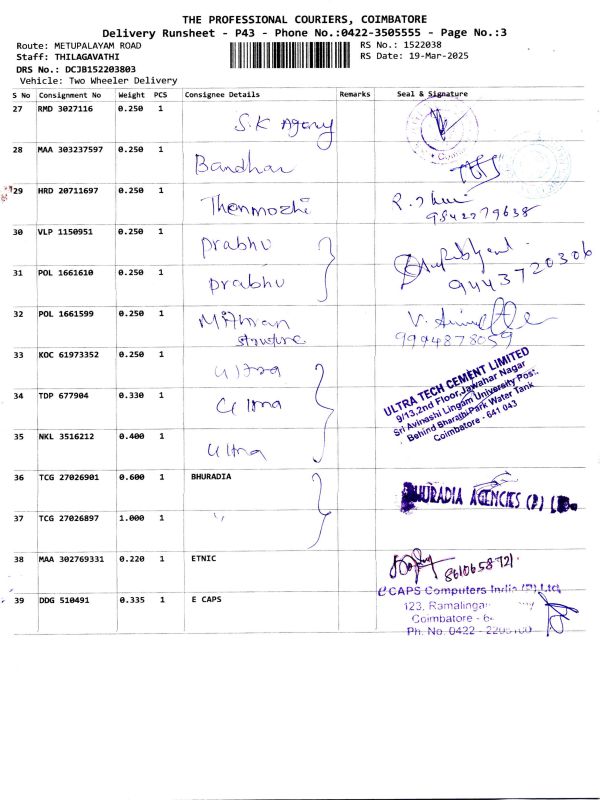 THE PROFESSIONAL COURIERS, COIMBATORE
Delivery Runsheet - P43 - Phone No.:0422-3505555 - Page No.:3
Route: METUPALAYAM ROAD RS No.: 1522038
Staff: THILAGAVATHI RS Date: 19-Mar-2025
DRS No.: DCJB152203803
Vehicle: Two Wheeler Delivery
S No Consignment No Weight PCS Consignee Details Remarks Seal & Signature
27 RMD 3027116 0.250 1 S.K Agency
28 MAA 303237597 0.250 1 Bandhan
29 HRD 20711697 0.250 1 Thenmozhi
9842279638
30 VLP 1150951 0.250 1 prabhu
31 POL 1661610 0.250 1 prabhu
9443720306
32 POL 1661599 0.250 1
structure
9994878059
33 KOC 61973352 0.250 1 Ultra
34 TDP 677904 0.330 1 Ultra
35 NKL 3516212 0.400 1 Ultra
ULTRA TECH CEMENT LIMITED
9/13,2nd Floor,Jawahar Nagar
Sri Avinashi Lingam University Post,
Behind BharathiPark Water Tank
Coimbatore - 641 043
36 TCG 27026901 0.600 1 BHURADIA
BHURADIA AGENCIES (P) Ltd.
37 TCG 27026897 1.000 1 "
38 MAA 302769331 0.220 1 ETNIC
8610658721
39 DDG 510491 0.335 1 E CAPS
eCAPS Computers India (P) Ltd,
123, Ramalinga
Coimbatore - 6
Ph. No. 0422 -